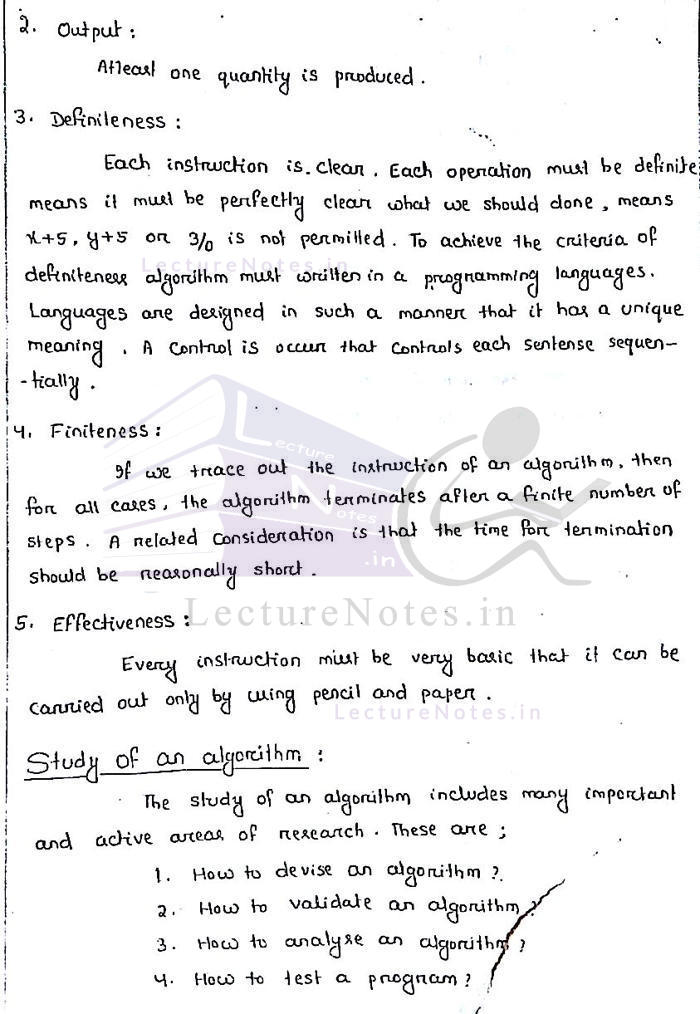 2. Output :
Atleast one quantity is produced .
3. Definiteness :
Each instruction is clear . Each operation must be definite
means it must be perfectly clear what we should done , means
x+5 , y+5 or 3/0 is not permitted . To achieve the criteria of
LectureNotes.in
definiteness algorithm must written in a programming languages .
Languages are designed in such a manner that it has a unique
meaning . A control is occur that controls each sentence sequen-
-tially .
4. Finiteness :
Lecture
If we trace out the instruction of an algorithm , then
for all cases , the algorithm terminates after a finite number of
Notes
steps . A related consideration is that the time for termination
.in
should be reasonally short .
5. Effectiveness :
LectureNotes.in
Every instruction must be very basic that it can be
carried out only by using pencil and paper .
LectureNotes.in
Study of an algorithm :
The study of an algorithm includes many important
and active areas of research . These are ;
1. How to devise an algorithm ?
2. How to validate an algorithm ?
3. How to analyse an algorithm ?
4. How to test a program ?